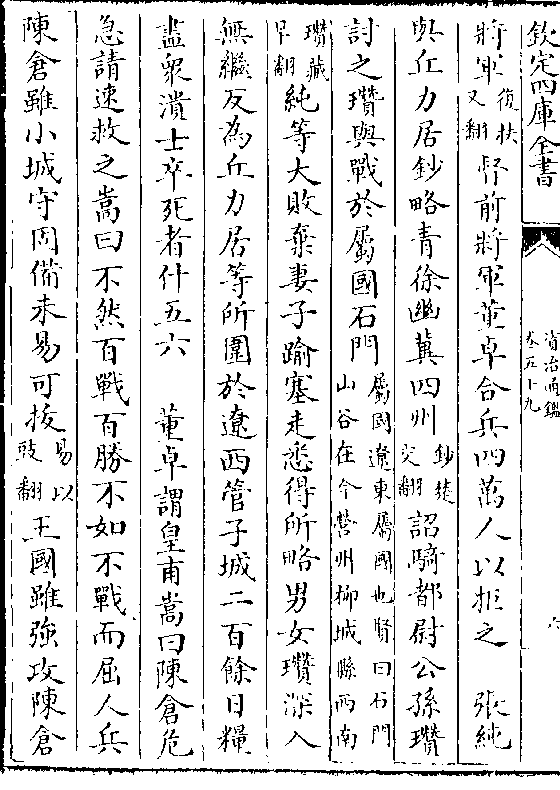 欽定四庫全書
資治通鑑
卷五十九
六
將軍復扶又翻督前將軍董卓合兵四萬人以拒之　張純
與丘力居鈔略青徐幽冀四州鈔楚交翻詔騎都尉公孫瓚
討之瓚與戰於屬國石門屬國遼東屬國也賢曰石門山谷在今營州柳城縣西南
瓚藏旱翻純等大敗棄妻子踰塞走悉得所略男女瓚深入
無繼反為丘力居等所圍於遼西管子城二百餘日糧
盡衆潰士卒死者什五六　董卓謂皇甫嵩曰陳倉危
急請速救之嵩曰不然百戰百勝不如不戰而屈人兵
陳倉雖小城守固備未易可拔易以豉翻王國雖強攻陳倉